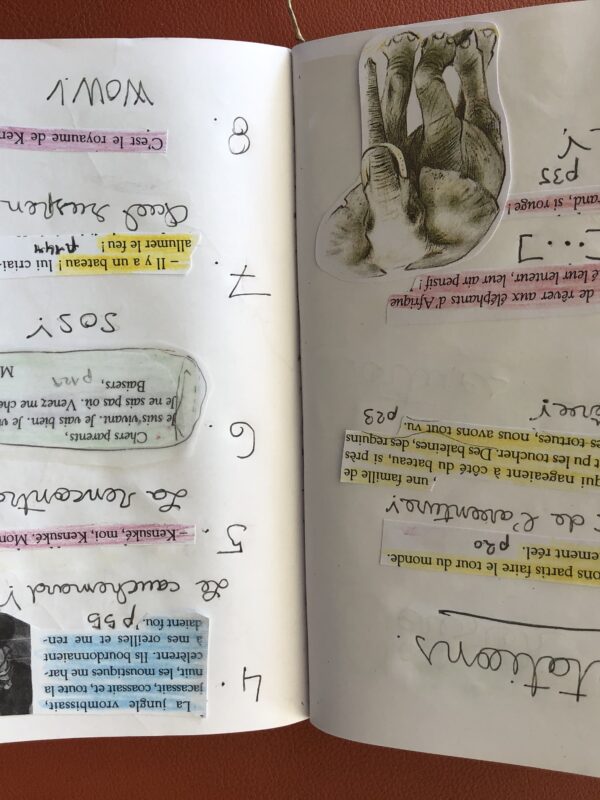 tations.
ons partis faire le tour du monde.
ement réel. p20
de l'aventure!
une famille de
qui nageaient à côté du bateau, si près
t pu les toucher. Des baleines, des requins
es tortues, nous avons tout vu.
p23
de rêver aux éléphants d'Afrique
é leur lenteur, leur air pensif !
[...]
rand, si rouge !
p35
4.
La jungle vrombissait,
jacassait, coassait et, toute la
nuit, les moustiques me har-
celèrent. Ils bourdonnaient
à mes oreilles et me ren-
daient fou. p 55
Le cauchemard!
5.
– Kensuké, moi, Kensuké. Mon
La rencontre
6.
Chers parents,
Je suis vivant. Je vais bien. Je v
Je ne sais pas où. Venez me che
Baisers,
M
SOS!
7.
– Il y a un bateau ! lui criai-
allumer le feu !
Quel suspen
8.
C'est le royaume de Ken
WOW!